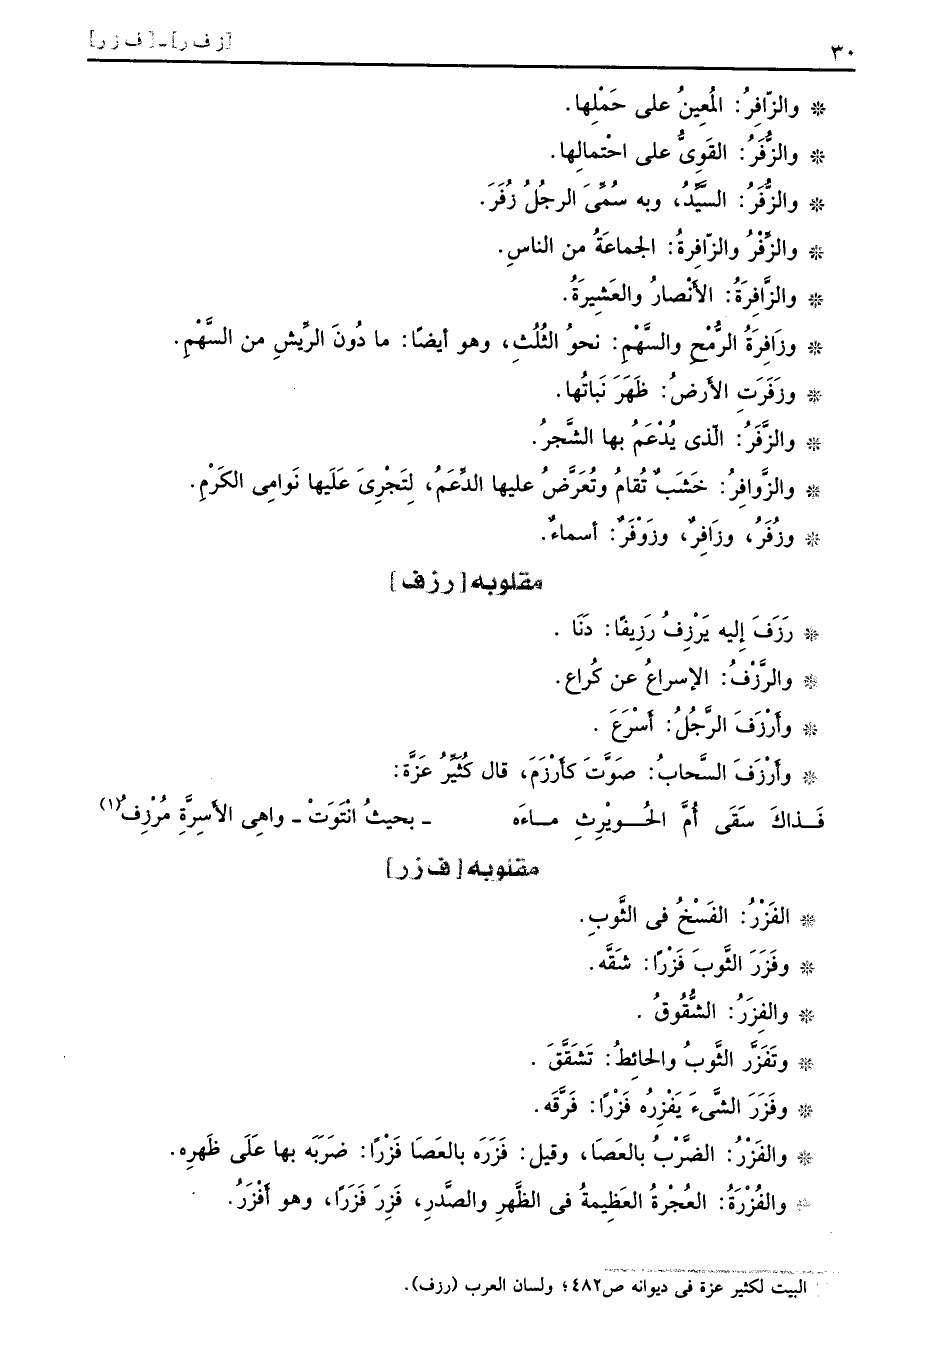 ٣٠ [ز ف ر] - [ف ز ر]
* والزّافِرُ: المُعِينُ على حَمْلِها.
* والزُّفَرُ: القَوِىُّ على احْتمالِها.
* والزُّفَرُ: السَّيِّدُ، وبه سُمِّىَ الرجلُ زُفَرَ.
* والزِّفْرُ والزّافِرةُ: الجماعَةُ من الناسِ.
* والزَّافِرَةُ: الأَنْصارُ والعَشِيرَةُ.
* وزَافِرَةُ الرُّمْحِ والسَّهْمِ: نحوُ الثُلُثِ، وهو أيضًا: ما دُونَ الرِّيشِ من السَّهْمِ.
* وزَفَرَتِ الأرضُ: ظَهَرَ نَباتُها.
* والزَّفَرُ: الّذى يُدْعَمُ بها الشَّجرُ.
* والزَّوافِرُ: خَشَبٌ تُقامُ وتُعَرَّضُ عليها الدِّعَمُ، لِتَجْرِىَ عَلَيها نَوامِى الكَرْمِ.
* وزُفَرُ، وزَافِرٌ، وزَوْفَرٌ: أسماءٌ.
مقلوبه [ر ز ف]
* رَزَفَ إليه يَرْزِفُ رَزِيفًا: دَنَا .
* والرَّزْفُ: الإسراعُ عن كُراع.
* وأَرْزَفَ الرَّجُلُ: أَسْرَعَ .
* وأَرْزَفَ السَّحابُ: صَوَّتَ كأَرْزَمَ، قال كُثَيِّرُ عَزَّة:
فَــذاكَ سَقَى أُمَّ الحُــويْرِثِ مــاءَه ـ بحيثُ انْتَوَتْ ـ واهِى الأسِرَّةِ مُرْزِفُ(١)
مقلوبه [ف ز ر]
* الفَزْرُ: الفَسْخُ فى الثَّوبِ.
* وفَزَرَ الثَّوبَ فَزْرًا: شَقَّه.
* والفِزَرُ: الشُّقُوقُ .
* وتَفَزَّر الثَّوبُ والحائطُ: تَشَقَّقَ .
* وفَزَرَ الشَّىءَ يَفْزِرُه فَزْرًا: فَرَّقَه.
* والفَزْرُ: الضَّرْبُ بالعَصَا، وقيل: فَزَرَه بالعَصَا فَزْرًا: ضَرَبَه بها عَلَى ظَهرِه.
* والفُزْرَةُ: العُجْرةُ العَظِيمةُ فى الظَّهرِ والصَّدرِ، فَزِرَ فَزَرًا، وهو أَفْزَرُ.
البيت لكثير عزة فى ديوانه ص٤٨٢؛ ولسان العرب (رزف).